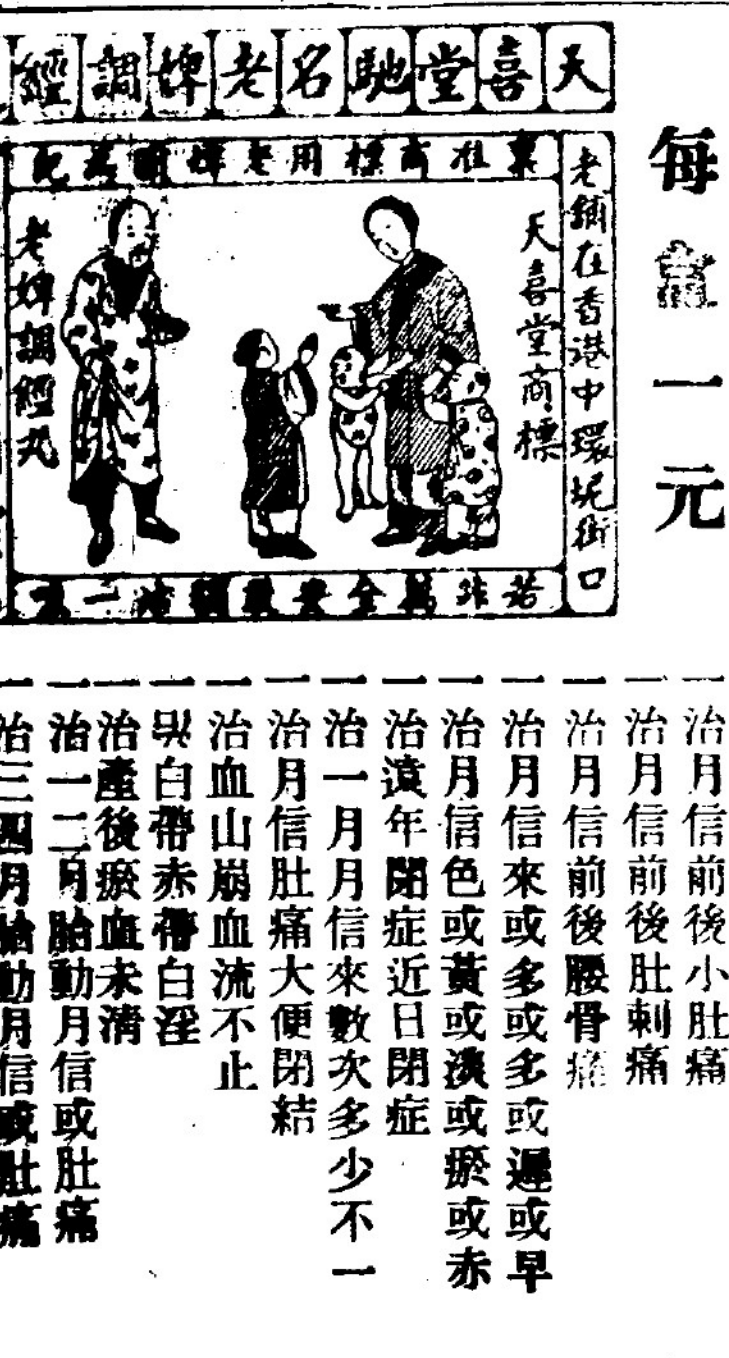 每盒一元
天喜堂馳名老婢調經
稟准商標用老婢
老鋪在香港中環坭街口
天喜堂商標
老婢調經丸
一治月信前後小肚痛
一治月信前後肚刺痛
一治月信前後腰骨痛
一治月信來或多或多或遲或早
一治月信色或黃或淡或瘀或赤
一治遠年閉症近日閉症
一治一月月信來數次多少不一
一治月信肚痛大便閉結
一治血山崩血流不止
一異白帶赤帶白淫
一治產後瘀血未清
一治一二月胎動月信或肚痛
一治三四月胎動月信或肚痛